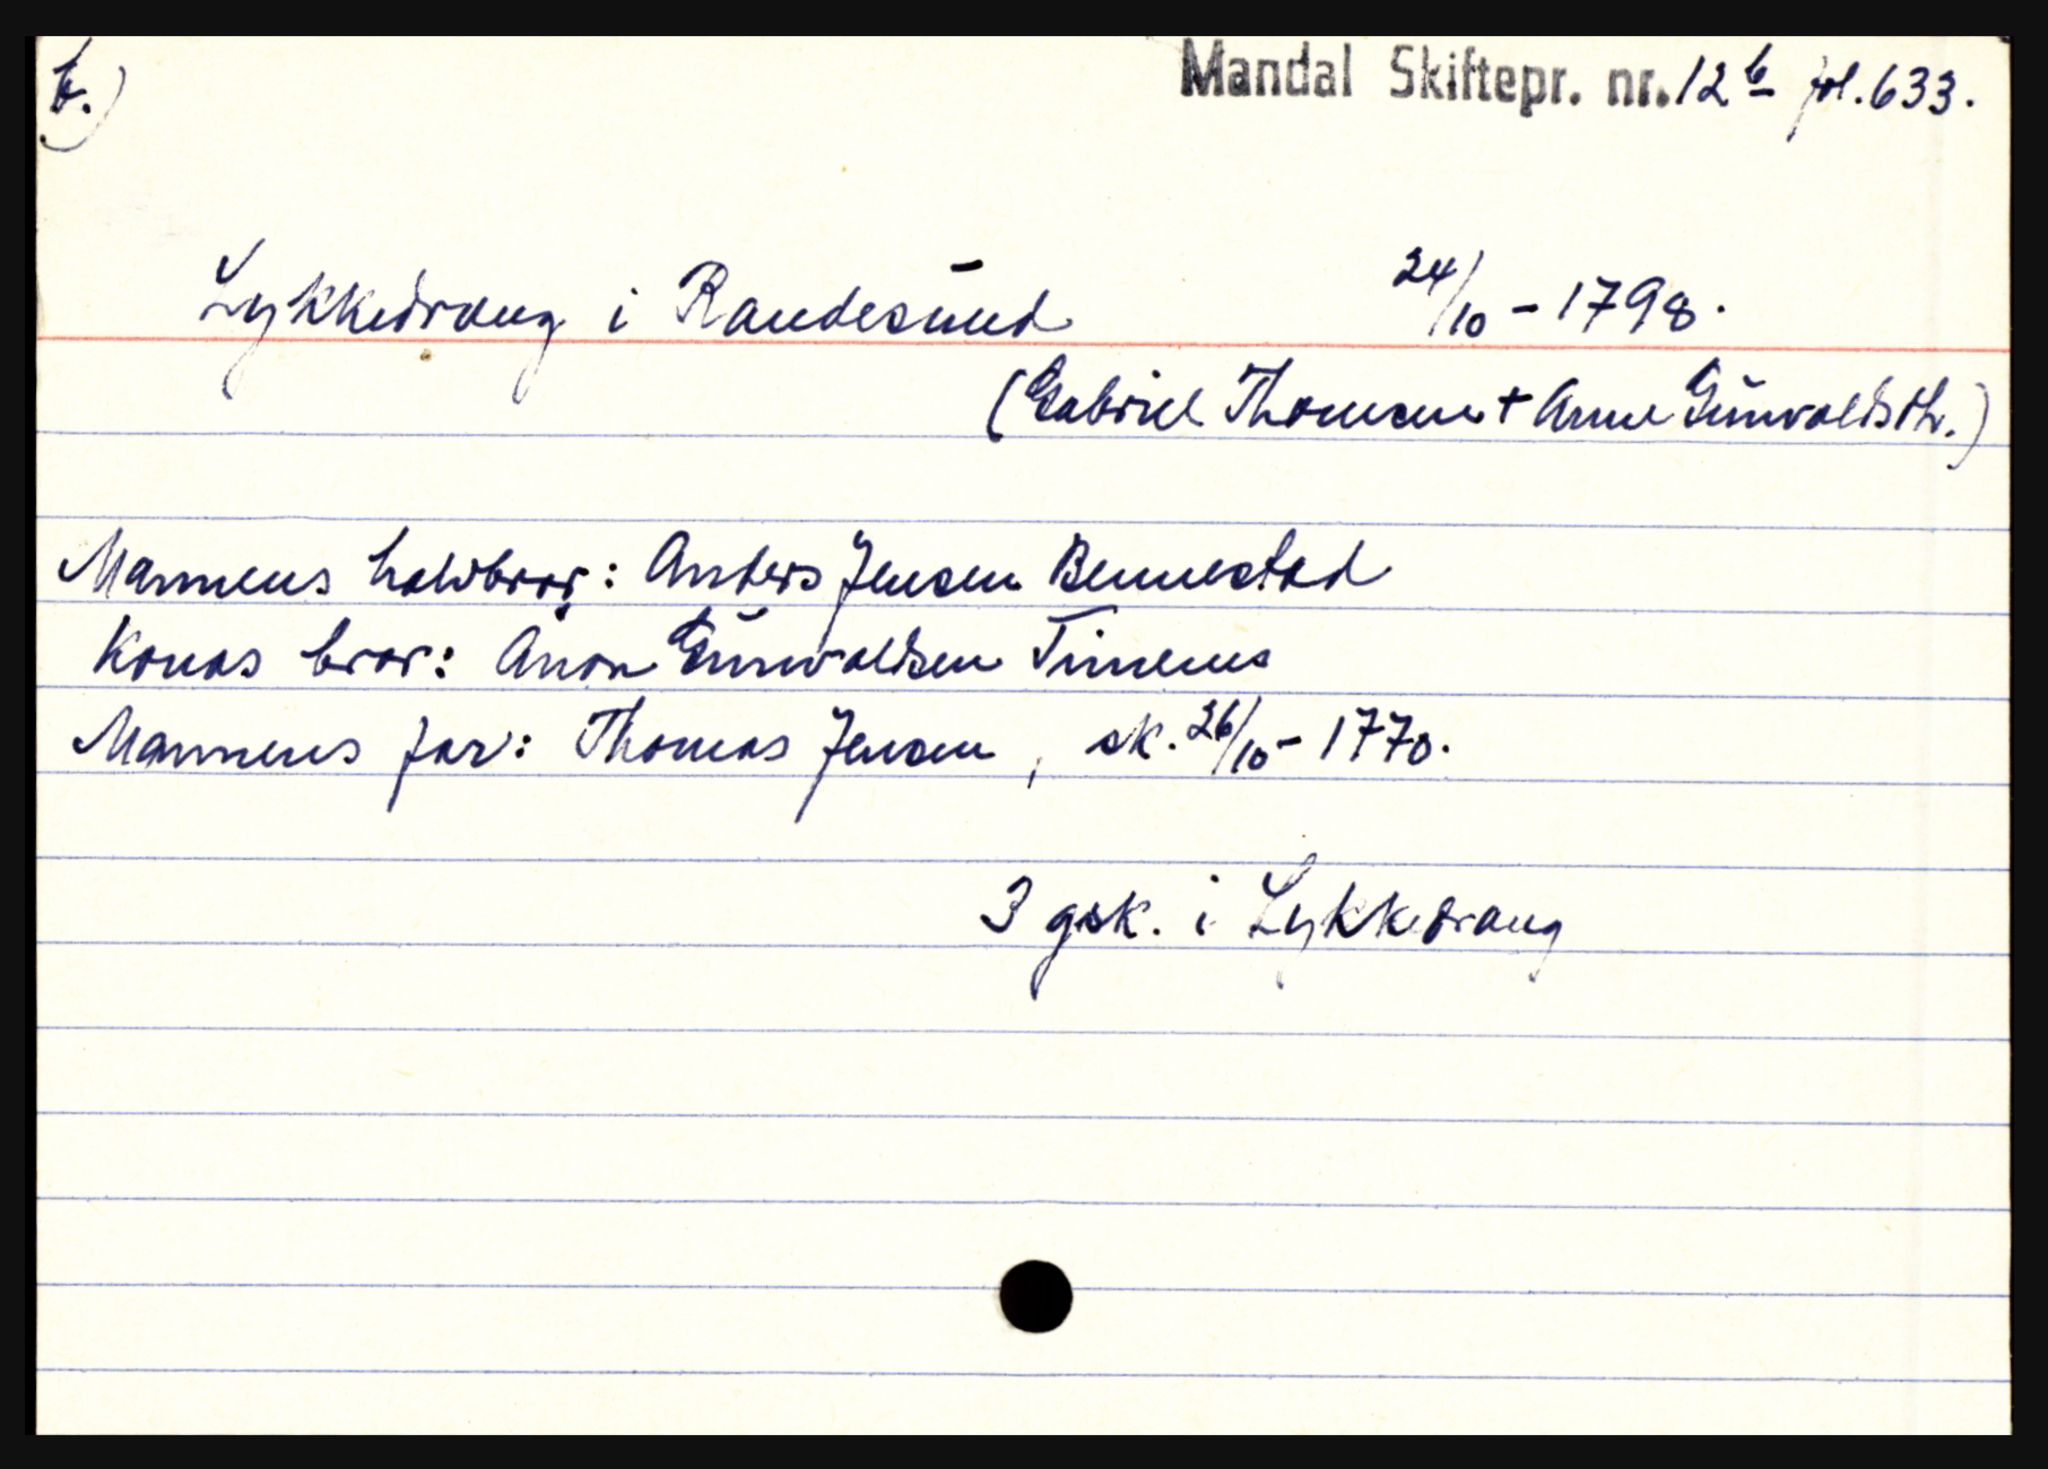 t.)
Mandal Skiftepr. nr. 12b fol. 633.
Lykkedrang i Randesund 24/10 - 1798.
(Gabriel Thomsen + Anne Gunvaldsdtr.)
Mannens halvbror: Anders Jensen Bennestad
Konas bror: Anon Gunvaldsen Timenes
Mannens far: Thomas Jensen, sk. 26/10 - 1770.
3 gsk. i Lykkedrang